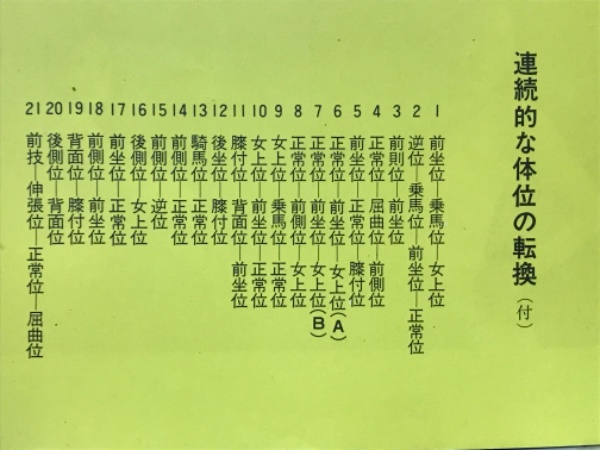 連続的な体位の転換(付)
1 前坐位―乗馬位―女上位
2 逆位―乗馬位―前坐位―正常位
3 前則位―前坐位
4 正常位―屈曲位―前側位
5 前坐位―正常位―膝付位
6 正常位―前坐位―女上位(A)
7 正常位―前坐位―女上位(B)
8 正常位―前側位―女上位
9 女上位―乗馬位―正常位
10 女上位―前坐位―正常位
11 膝付位―背面位―前坐位
12 後坐位―膝付位
13 騎馬位―正常位
14 前側位―正常位
15 前側位―逆位
16 後側位―女上位
17 前坐位―正常位
18 前側位―前坐位
19 背面位―膝付位
20 後側位―背面位
21 前技―伸張位―正常位―屈曲位